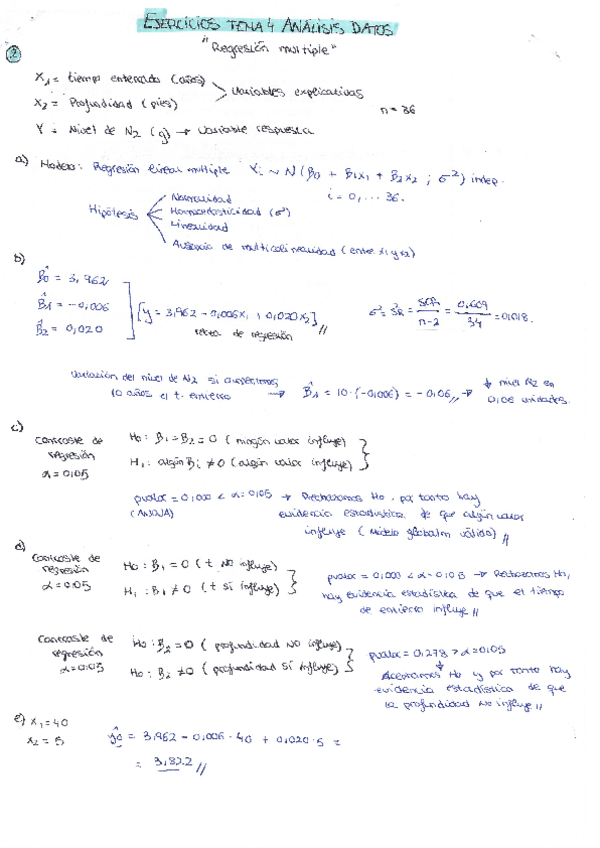 EJERCICIOS TEMA 4 ANÁLISIS DATOS
"Regresión multiple"
2
X1 = tiempo enterrado (años)
X2 = Profundidad (pies)
variables explicativas
n = 36
Y = Nivel de N2 (g) → variable respuesta
a) Modelo: Regresión lineal multiple Yi ~ N (B0 + B1x1 + B2x2 ; σ²) indep.
i = 0, ... 36.
Hipótesis
Normalidad
Homocedasticidad (σ²)
Linealidad
Ausencia de multicolinealidad (entre x1 y x2)
b)
B̂0 = 3,962
B̂1 = -0,006
B̂2 = 0,020
[y = 3,962 - 0,006x1 + 0,020x2] //
recta de regresión
σ² = SR² = SCR / n-2 = 0,609 / 34 = 0,018.
Variación del nivel de N2 si aumentamos
10 años el t. entierro → B̂1 = 10·(-0,006) = -0,06 // → ↓ nivel N2 en
0,06 unidades.
c)
Contraste de
regresión
α = 0,05
H0 : B1 = B2 = 0 (ningún valor influye)
H1 : algún Bi ≠ 0 (algún valor influye)
pvalor = 0,000 < α = 0,05 → Rechazamos H0, por tanto hay
(ANOVA)
evidencia estadística de que algún valor
influye (modelo globalm válido) //
d)
Contraste de
regresión
α = 0,05
H0 : B1 = 0 (t NO influye)
H1 : B1 ≠ 0 (t sí influye)
pvalor = 0,000 < α = 0,05 → Rechazamos H0,
hay evidencia estadística de que el tiempo
de entierro influye //
Contraste de
regresión
α = 0,05
H0 : B2 = 0 (profundidad NO influye)
H0 : B2 ≠ 0 (profundidad SÍ influye)
pvalor = 0,278 > α = 0,05
Aceptamos H0 y por tanto hay
evidencia estadística de que
la profundidad no influye //
e) x1 = 40
x2 = 5
ŷ0 = 3,962 - 0,006 · 40 + 0,020 · 5 =
= 3,822 //